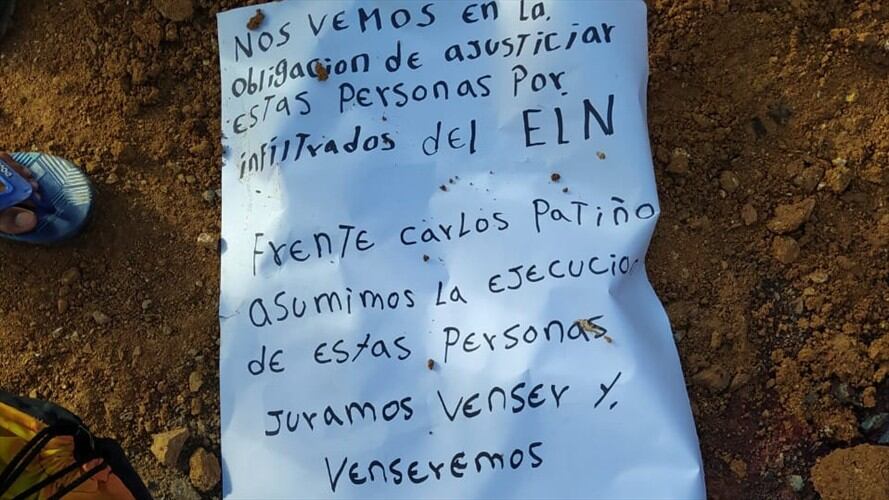 NOS VEMOS EN LA
obligacion DE AJUSTICIAR
ESTAS PERSONAS POR
infiltrados del ELN
FRENTE CARLOS PATIÑO
asumimos LA EJECUCIO
DE ESTAS PERSONAS
JURAMOS VENSER Y.
VENSEREMOS